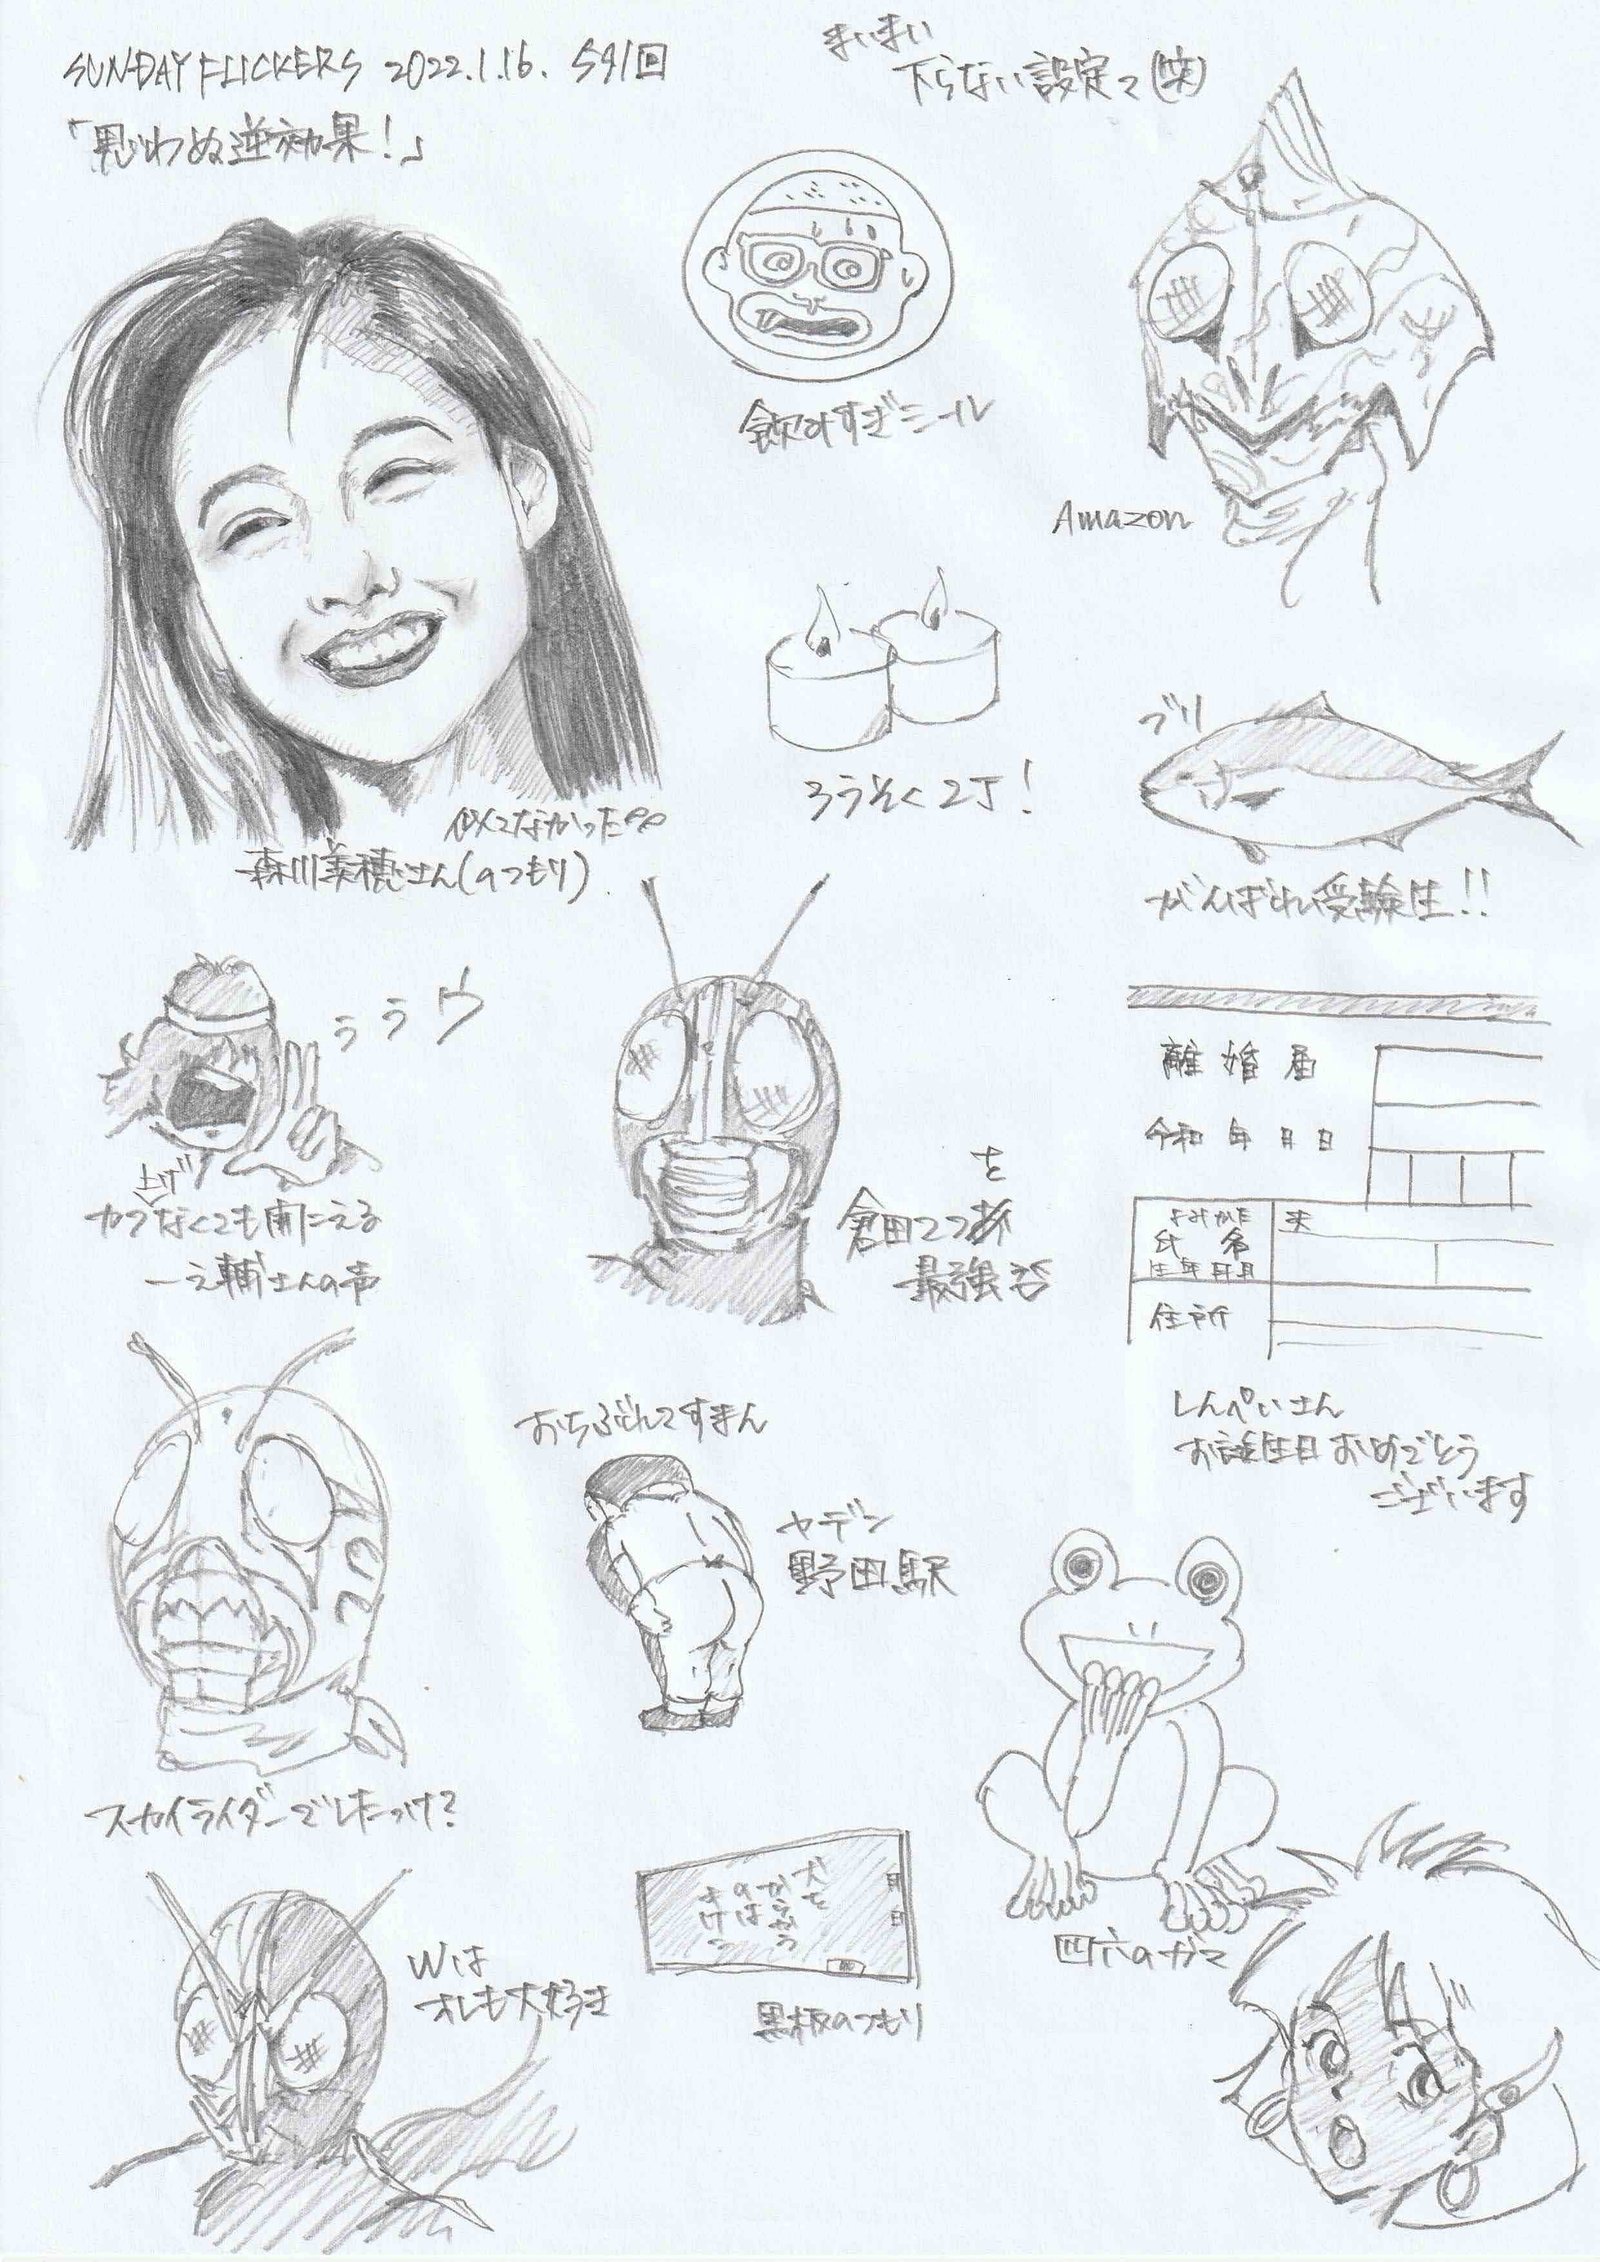 SUNDAY FLICKERS 2022.1.16. 591回
「思わぬ逆効果!」
まいまい
下らない設定で(笑)
飲みすぎシール
Amazon
ろうそく2丁!
ブリ
がんばれ受験生!!
似てなかった
森川美穂さん(のつもり)
うううウ
上げ
なくても聞こえる
一之輔さんの声
を
倉田てつ
最強
離婚届
令和 年 月 日
よみかた
氏 名
生年月日
夫
住所
しんぺいさん
お誕生日おめでとう
ございます
おちぶれてすまん
ヤデン
野田駅
スカイライダーでしたっけ?
Wは
オレも大好き
月 日
犬を
黒板のつもり
四六のガマ